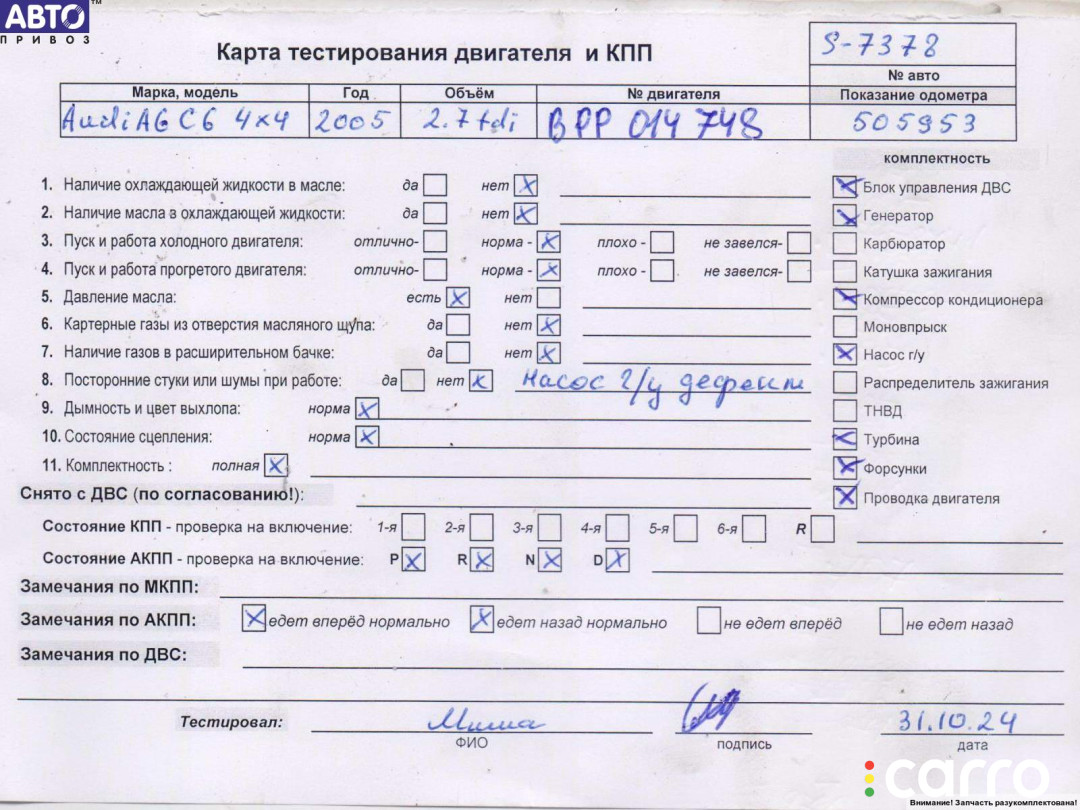 АВТО™
ПРИВОЗ
Карта тестирования двигателя и КПП
S-7378
№ авто
Марка, модель Год Объём № двигателя Показание одометра
Audi A6 C6 4x4 2005 2.7 tdi BPP 014748 505953
комплектность
1. Наличие охлаждающей жидкости в масле: да нет
Блок управления ДВС
2. Наличие масла в охлаждающей жидкости: да нет
Генератор
3. Пуск и работа холодного двигателя: отлично- норма - плохо - не завелся-
Карбюратор
4. Пуск и работа прогретого двигателя: отлично- норма - плохо - не завелся-
Катушка зажигания
5. Давление масла: есть нет
Компрессор кондиционера
6. Картерные газы из отверстия масляного щупа: да нет
Моновпрыск
7. Наличие газов в расширительном бачке: да нет
Насос г/у
8. Посторонние стуки или шумы при работе: да нет Насос г/у дефект
Распределитель зажигания
9. Дымность и цвет выхлопа: норма
ТНВД
10. Состояние сцепления: норма
Турбина
11. Комплектность : полная
Форсунки
Снято с ДВС (по согласованию!):
Проводка двигателя
Состояние КПП - проверка на включение: 1-я 2-я 3-я 4-я 5-я 6-я R
Состояние АКПП - проверка на включение: P R N D
Замечания по МКПП:
Замечания по АКПП: едет вперёд нормально едет назад нормально не едет вперёд не едет назад
Замечания по ДВС:
Тестировал: Миша 31.10.24
ФИО подпись дата
carro
Внимание! Запчасть разукомплектована!